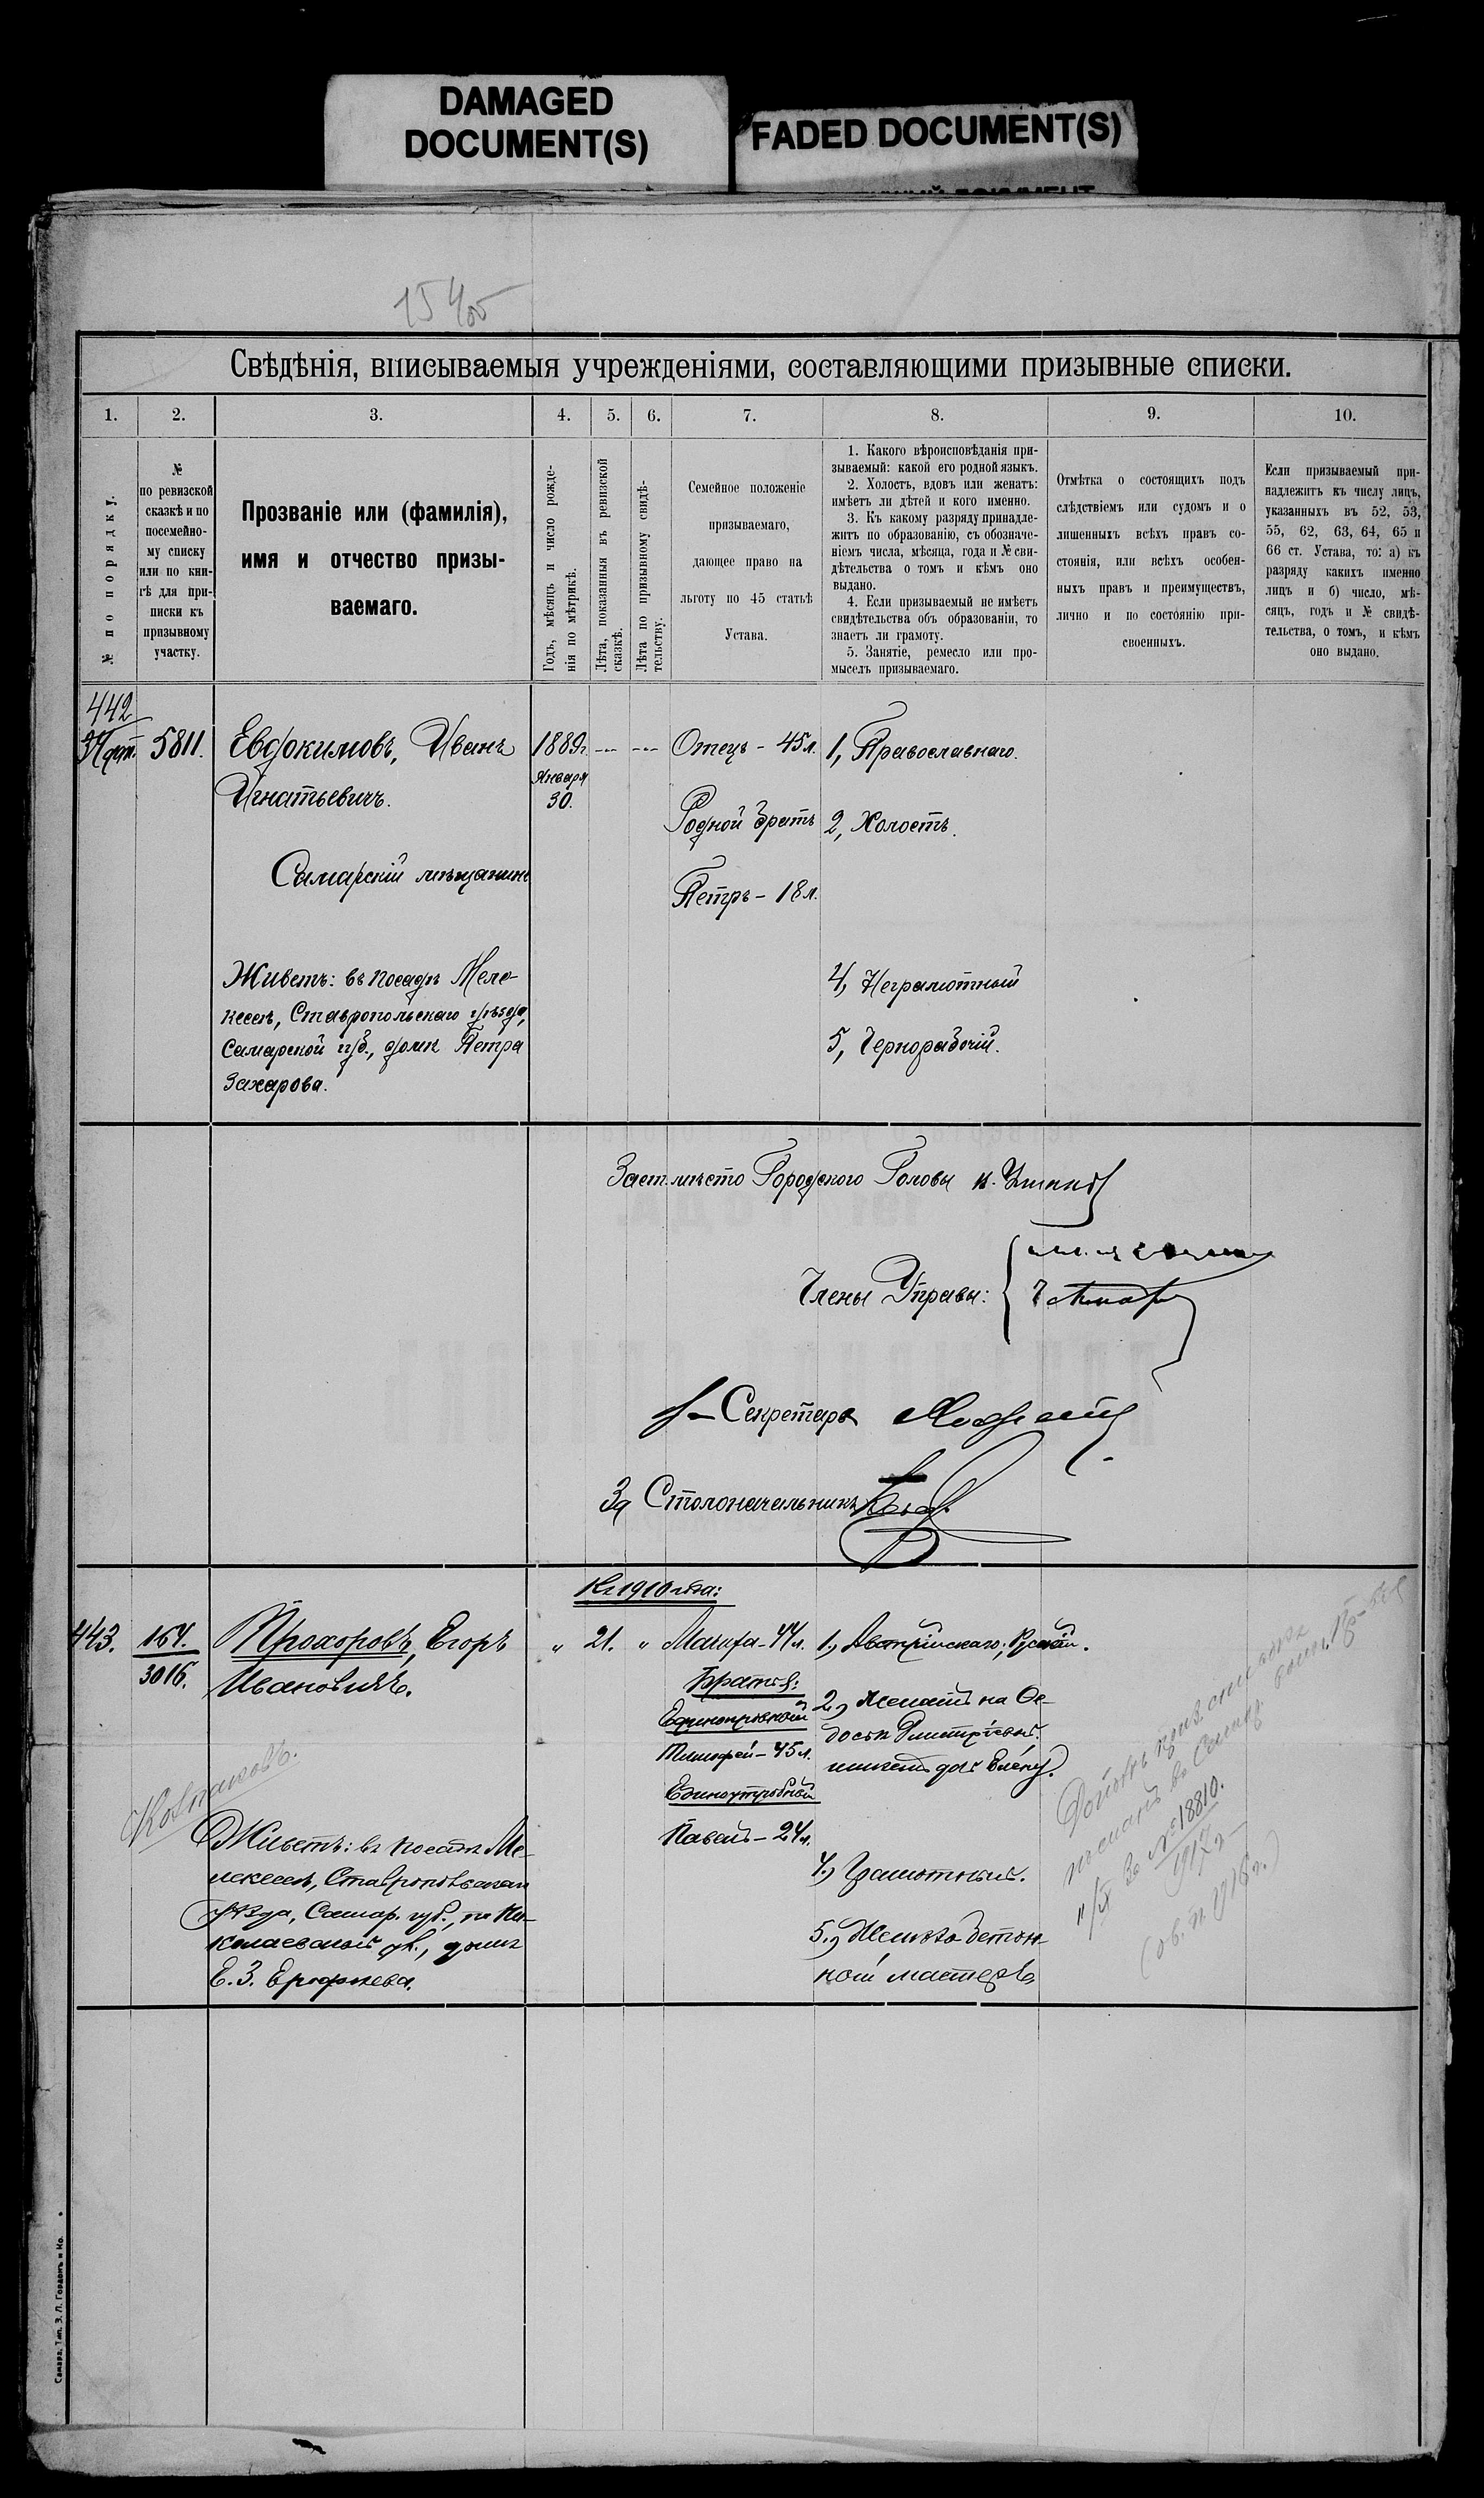 DAMAGED
DOCUMENT(S)
FADED DOCUMENT(S)
Свѣдѣнія, вписываемыя учрежденіями, составляющими призывные списки.
1. 2. 3. 4. 5. 6. 7. 8. 9. 10.
№ по порядку.
№
по ревизской
сказкѣ и по
посемейно-
му списку
или по кни-
гѣ для при-
писки къ
призывному
участку.
Прозваніе или (фамилія),
имя и отчество призы-
ваемаго.
Годъ, мѣсяцъ и число рожде-
нія по метрикѣ.
Лѣта, показанныя въ ревизской
сказкѣ.
Лѣта по призывному свидѣ-
тельству.
Семейное положеніе
призываемаго,
дающее право на
льготу по 45 статьѣ
Устава.
1. Какого вѣроисповѣданія при-
зываемый: какой его родной языкъ.
2. Холостъ, вдовъ или женатъ:
имѣетъ ли дѣтей и кого именно.
3. Къ какому разряду принадле-
житъ по образованію, съ обозначе-
ніемъ числа, мѣсяца, года и № сви-
дѣтельства о томъ и кѣмъ оно
выдано.
4. Если призываемый не имѣетъ
свидѣтельства объ образованіи, то
знаетъ ли грамоту.
5. Занятіе, ремесло или про-
мыселъ призываемаго.
Отмѣтка о состоящихъ подъ
слѣдствіемъ или судомъ и о
лишенныхъ всѣхъ правъ со-
стоянія, или всѣхъ особен-
ныхъ правъ и преимуществъ,
лично и по состоянію при-
своенныхъ.
Если призываемый при-
надлежитъ къ числу лицъ,
указанныхъ въ 52, 53,
55, 62, 63, 64, 65 и
66 ст. Устава, то: а) къ
разряду какихъ именно
лицъ и б) число, мѣ-
сяцъ, годъ и № свидѣ-
тельства, о томъ, и кѣмъ
оно выдано.
442
5811.
Евдокимовъ, Иванъ
Игнатьевичъ.
Самарскій мѣщанинъ
Живетъ: въ посадѣ Меле-
кессѣ, Ставропольскаго уѣзда,
Самарской губ., домъ Петра
Захарова.
1889г.
Января
30.
Отецъ - 45л.
Родной братъ
Петръ - 18л.
1, Православнаго.
2, Холостъ.
4, Неграмотный
5, Чернорабочій.
Заст. мѣсто Городского Головы
Члены Управы:
Секретарь
За Столоначальника
443.
164.
3016.
Прохоровъ, Егоръ
Ивановичъ.
Живетъ: въ посадѣ Ме-
лекессѣ, Ставропольскаго
уѣзда, Самар. губ., по Ни-
колаевской ул., домъ
Е. З. Ерофѣева.
„ 21. „
Братья:
Единокровный
Тимофей - 45л.
Единоутробный
Павелъ - 24л.
2, Женатъ на Ѳе-
досьѣ Дмитріевой.
имѣетъ дочь Елену.
4, Грамотный.
5, Желѣзо-бетон-
ной мастеръ
за № 18810.
Самара. Тип. З. Л. Гордонъ и Ко.